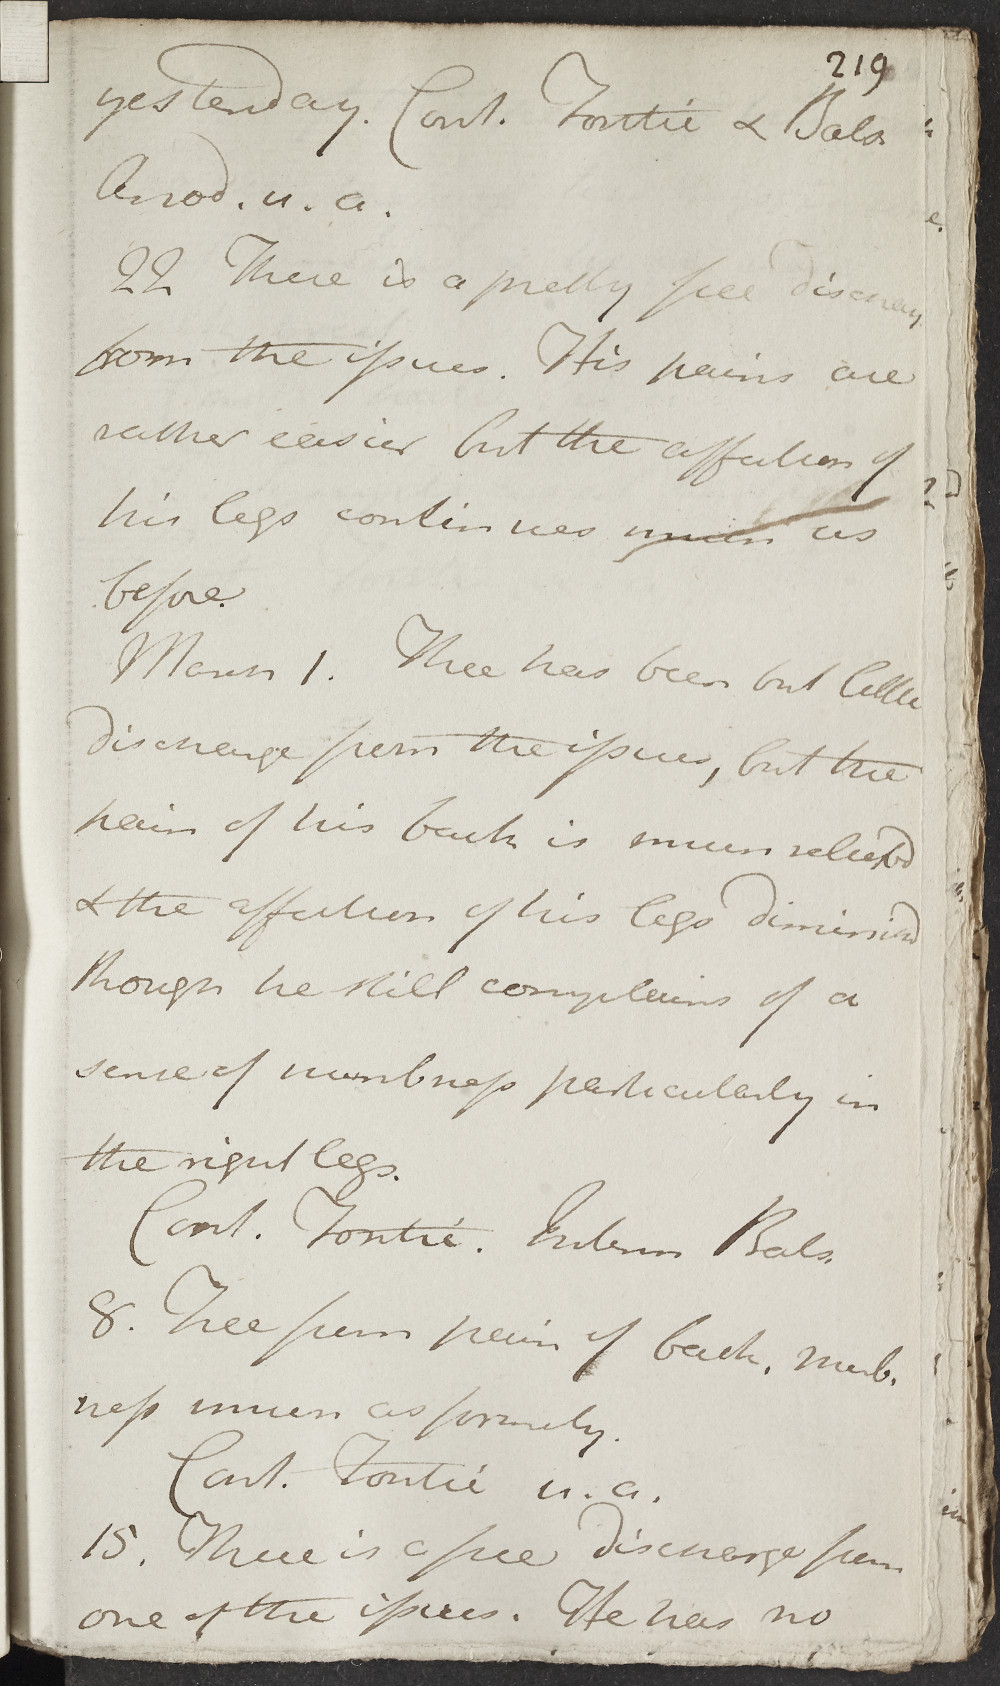 219
yesterday. Cont. Fontic & Bals
Anod. u. a.
22 There is a pretty free discharg
from the issues. His pains are
rather easier but the affection of
his legs continues much as
before.
March 1. There has been but little
discharge from the issues, but the
pain of his back is much relieved
& the affection of his legs diminishd
though he still complains of a
sense of numbness particularly in
the right legs.
Cont. Fontic. Interm Bals.
8. Free from pain of back. Numb.
ness much as formerly.
Cont. Fontic u. a.
15. There is a free discharge from
one of the issues. He has no